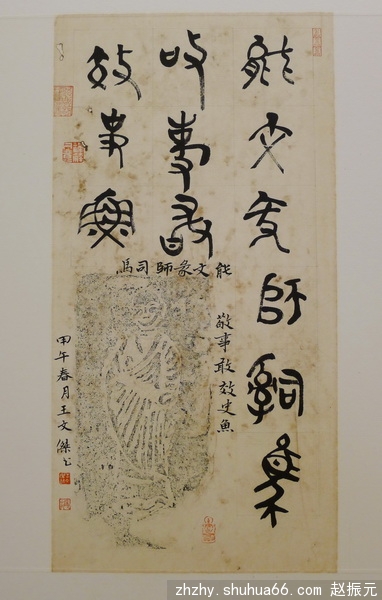 能文象師司馬
敬事敢
效史魚
能文象師司馬
敬事敢效史魚
甲午春月王文傑
zhzhy.shuhua66.com 赵振元